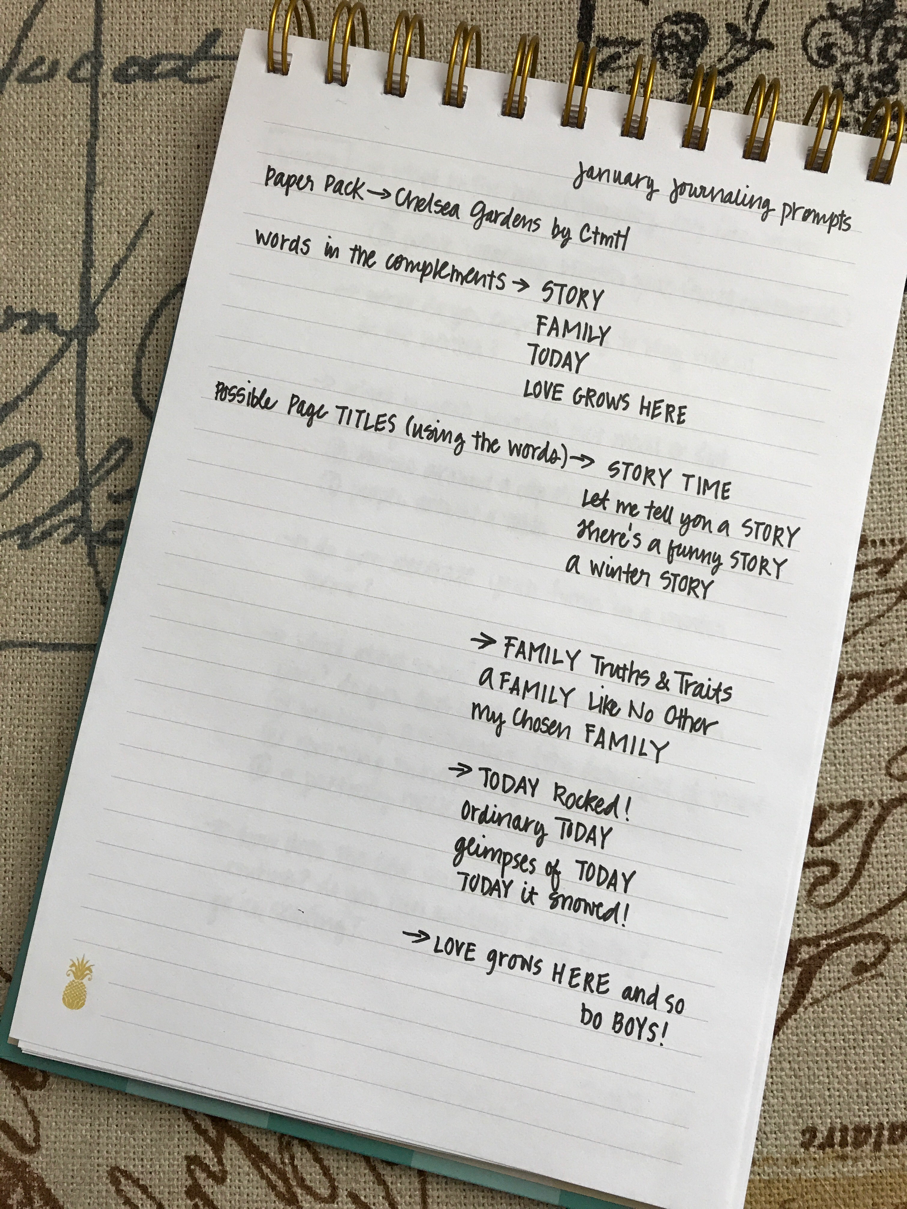 January Journaling prompts
Paper Pack → Chelsea Gardens by CTMH
words in the complements → STORY
FAMILY
TODAY
LOVE GROWS HERE
Possible Page TITLES (using the words) → STORY TIME
Let me tell you a STORY
Here's a funny STORY
a winter STORY
→ FAMILY Truths & Traits
a FAMILY Like No Other
my Chosen FAMILY
→ TODAY Rocked!
Ordinary TODAY
glimpses of TODAY
TODAY it snowed!
→ LOVE grows HERE and so
do BOYS!